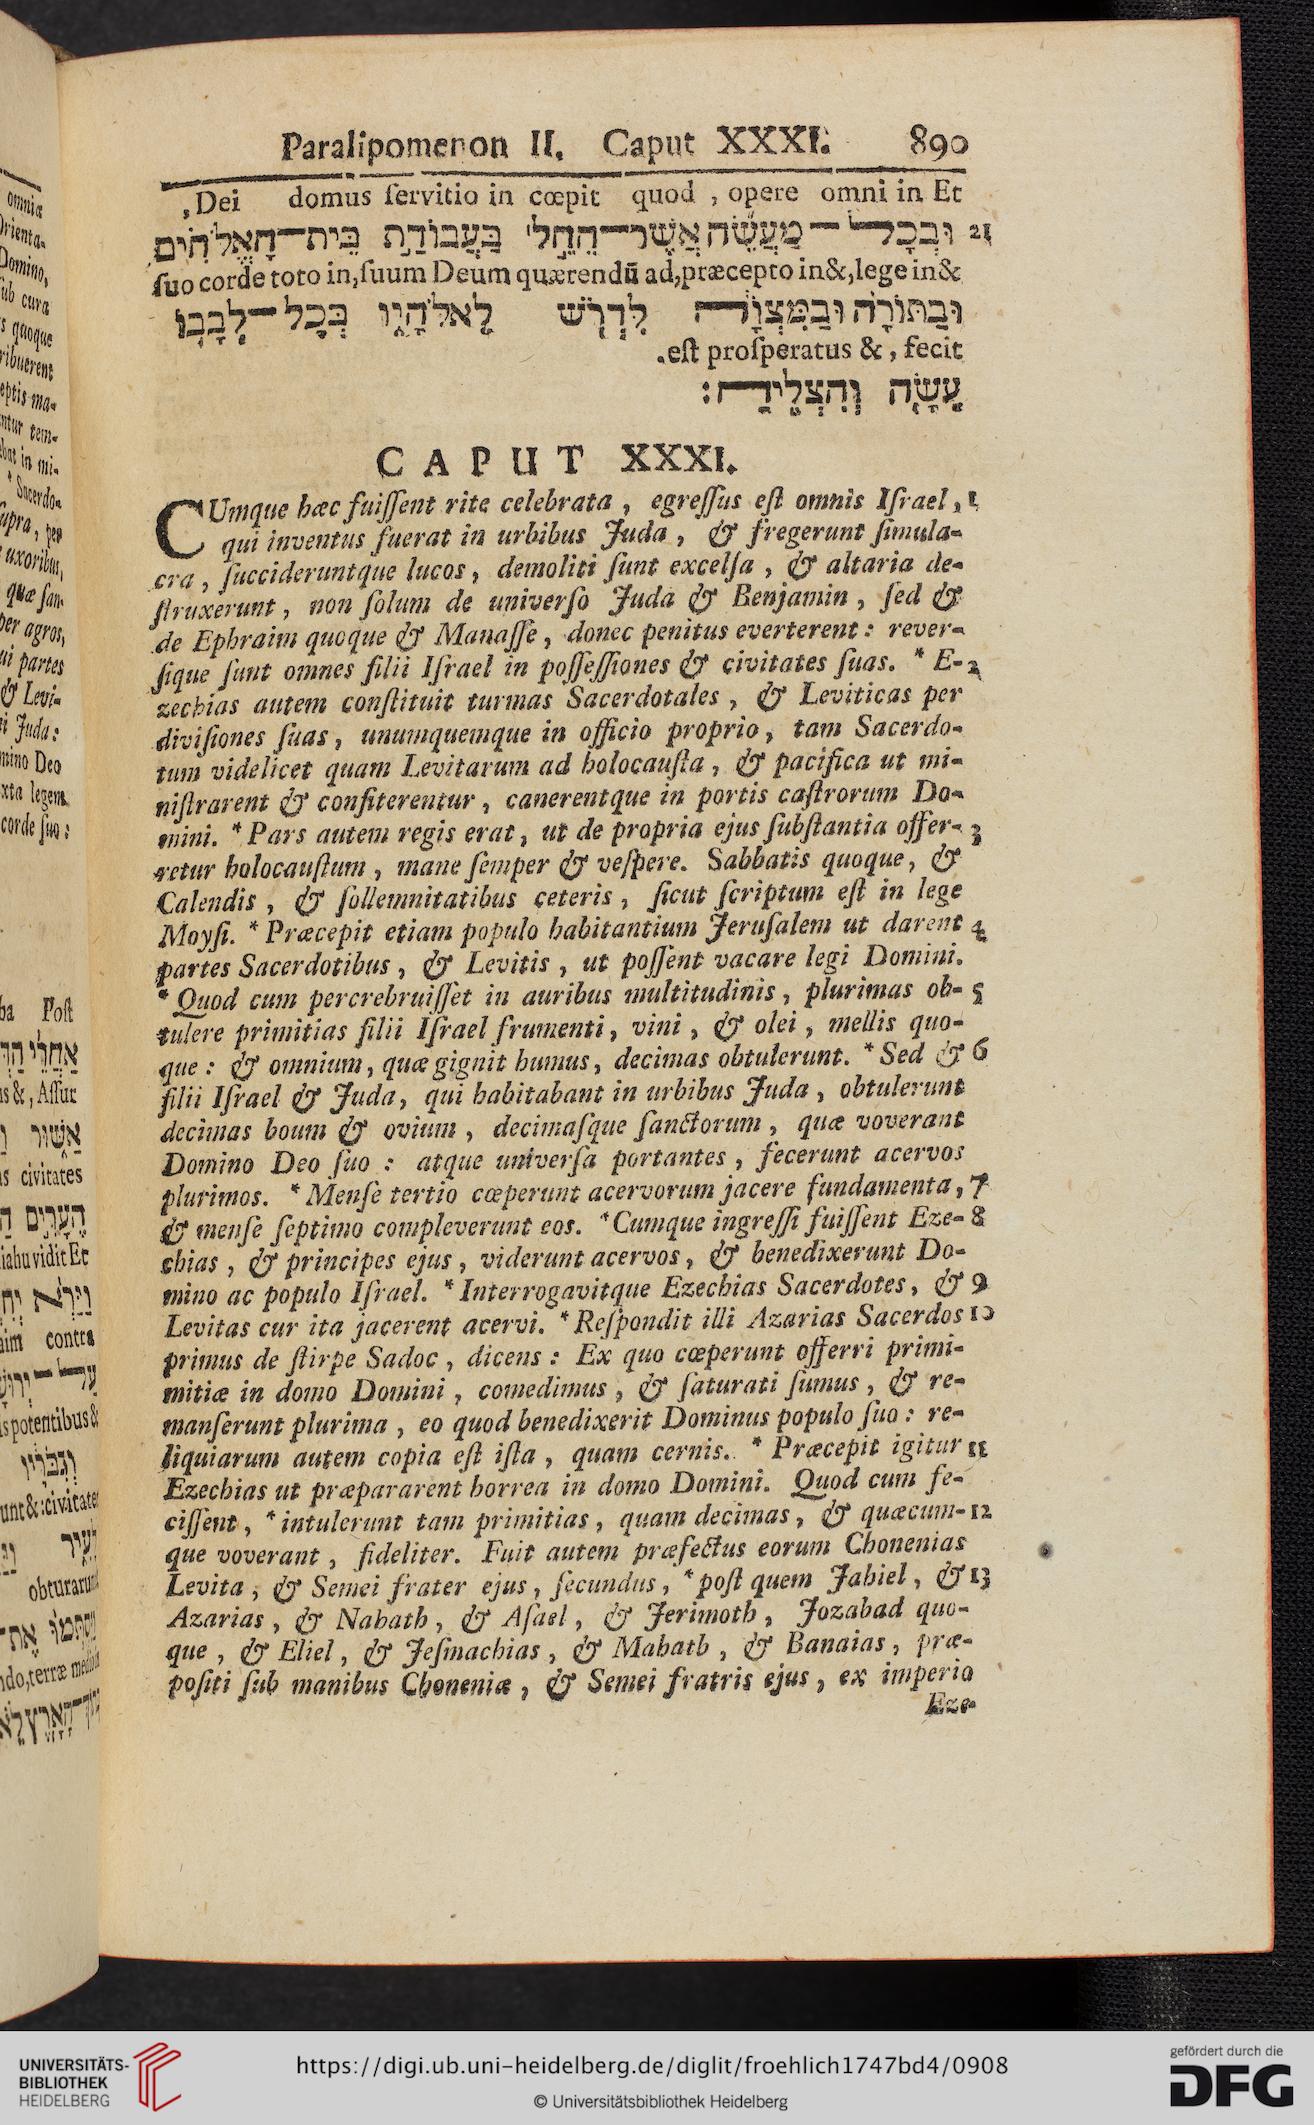 Paralipomenon II. Caput XXXI. 890
,Dei domus ſervitio in cœpit quod , opere omni in Et
וּבְכָל־מַעֲשֶׂה אֲשֶׁר־הֵחֵל בַּעֲבוֹדַת בֵּית־הָאֱלֹהִים 21
ſuo corde toto in,ſuum Deum quærendũ ad,præcepto in&,lege in&
וּבַתּוֹרָה וּבַמִּצְוָה לִדְרֹשׁ לֵאלֹהָיו בְּכָל־לְבָבוֹ
.eſt proſperatus & , fecit
עָשָׂה וְהִצְלִיחַ׃
CAPUT XXXI.
CUmque hæc fuiſſent rite celebrata , egreſſus eſt omnis Iſrael , 1
qui inventus fuerat in urbibus Juda , & fregerunt ſimula-
cra , ſuccideruntque lucos , demoliti ſunt excelſa , & altaria de-
ſtruxerunt , non ſolum de univerſo Juda & Benjamin , ſed &
de Ephraim quoque & Manaſſe , donec penitus everterent : rever-
ſique ſunt omnes filii Iſrael in poſſeſſiones & civitates ſuas. * E- 2
zechias autem conſtituit turmas Sacerdotales , & Leviticas per
diviſiones ſuas , unumquemque in officio proprio , tam Sacerdo-
tum videlicet quam Levitarum ad holocauſta , & pacifica ut mi-
niſtrarent & confiterentur , canerentque in portis caſtrorum Do-
mini. * Pars autem regis erat , ut de propria ejus ſubſtantia offer- 3
retur holocauſtum , mane ſemper & veſpere. Sabbatis quoque , &
Calendis , & ſollemnitatibus ceteris , ſicut ſcriptum eſt in lege
Moyſi. * Præcepit etiam populo habitantium Jeruſalem ut darent 4
partes Sacerdotibus , & Levitis , ut poſſent vacare legi Domini.
* Quod cum percrebruiſſet in auribus multitudinis , plurimas ob- 5
tulere primitias filii Iſrael frumenti , vini , & olei , mellis quo-
que : & omnium , quæ gignit humus , decimas obtulerunt. * Sed & 6
filii Iſrael & Juda , qui habitabant in urbibus Juda , obtulerunt
decimas boum & ovium , decimaſque ſanctorum , quæ voverant
Domino Deo ſuo : atque univerſa portantes , fecerunt acervos
plurimos. * Menſe tertio cœperunt acervorum jacere fundamenta , 7
& menſe ſeptimo compleverunt eos. * Cumque ingreſſi fuiſſent Eze- 8
chias , & principes ejus , viderunt acervos , & benedixerunt Do-
mino ac populo Iſrael. * Interrogavitque Ezechias Sacerdotes , & 9
Levitas cur ita jacerent acervi. * Reſpondit illi Azarias Sacerdos 10
primus de ſtirpe Sadoc , dicens : Ex quo cœperunt offerri primi-
mitiæ in domo Domini , comedimus , & ſaturati ſumus , & re-
manſerunt plurima , eo quod benedixerit Dominus populo ſuo : re-
liquiarum autem copia eſt iſta , quam cernis. * Præcepit igitur 11
Ezechias ut præpararent horrea in domo Domini. Quod cum fe-
ciſſent , * intulerunt tam primitias , quam decimas , & quæcum- 12
que voverant , fideliter. Fuit autem præfectus eorum Chonenias
Levita , & Semei frater ejus , ſecundus , * poſt quem Jahiel , & 13
Azarias , & Nahath , & Aſael , & Jerimoth , Jozabad quo-
que , & Eliel , & Jeſmachias , & Mahath , & Banaias , præ-
poſiti ſub manibus Choneniæ , & Semei fratris ejus , ex imperio
Eze-
UNIVERSITÄTS-
BIBLIOTHEK
HEIDELBERG
https://digi.ub.uni-heidelberg.de/diglit/froehlich1747bd4/0908
© Universitätsbibliothek Heidelberg
gefördert durch die
DFG